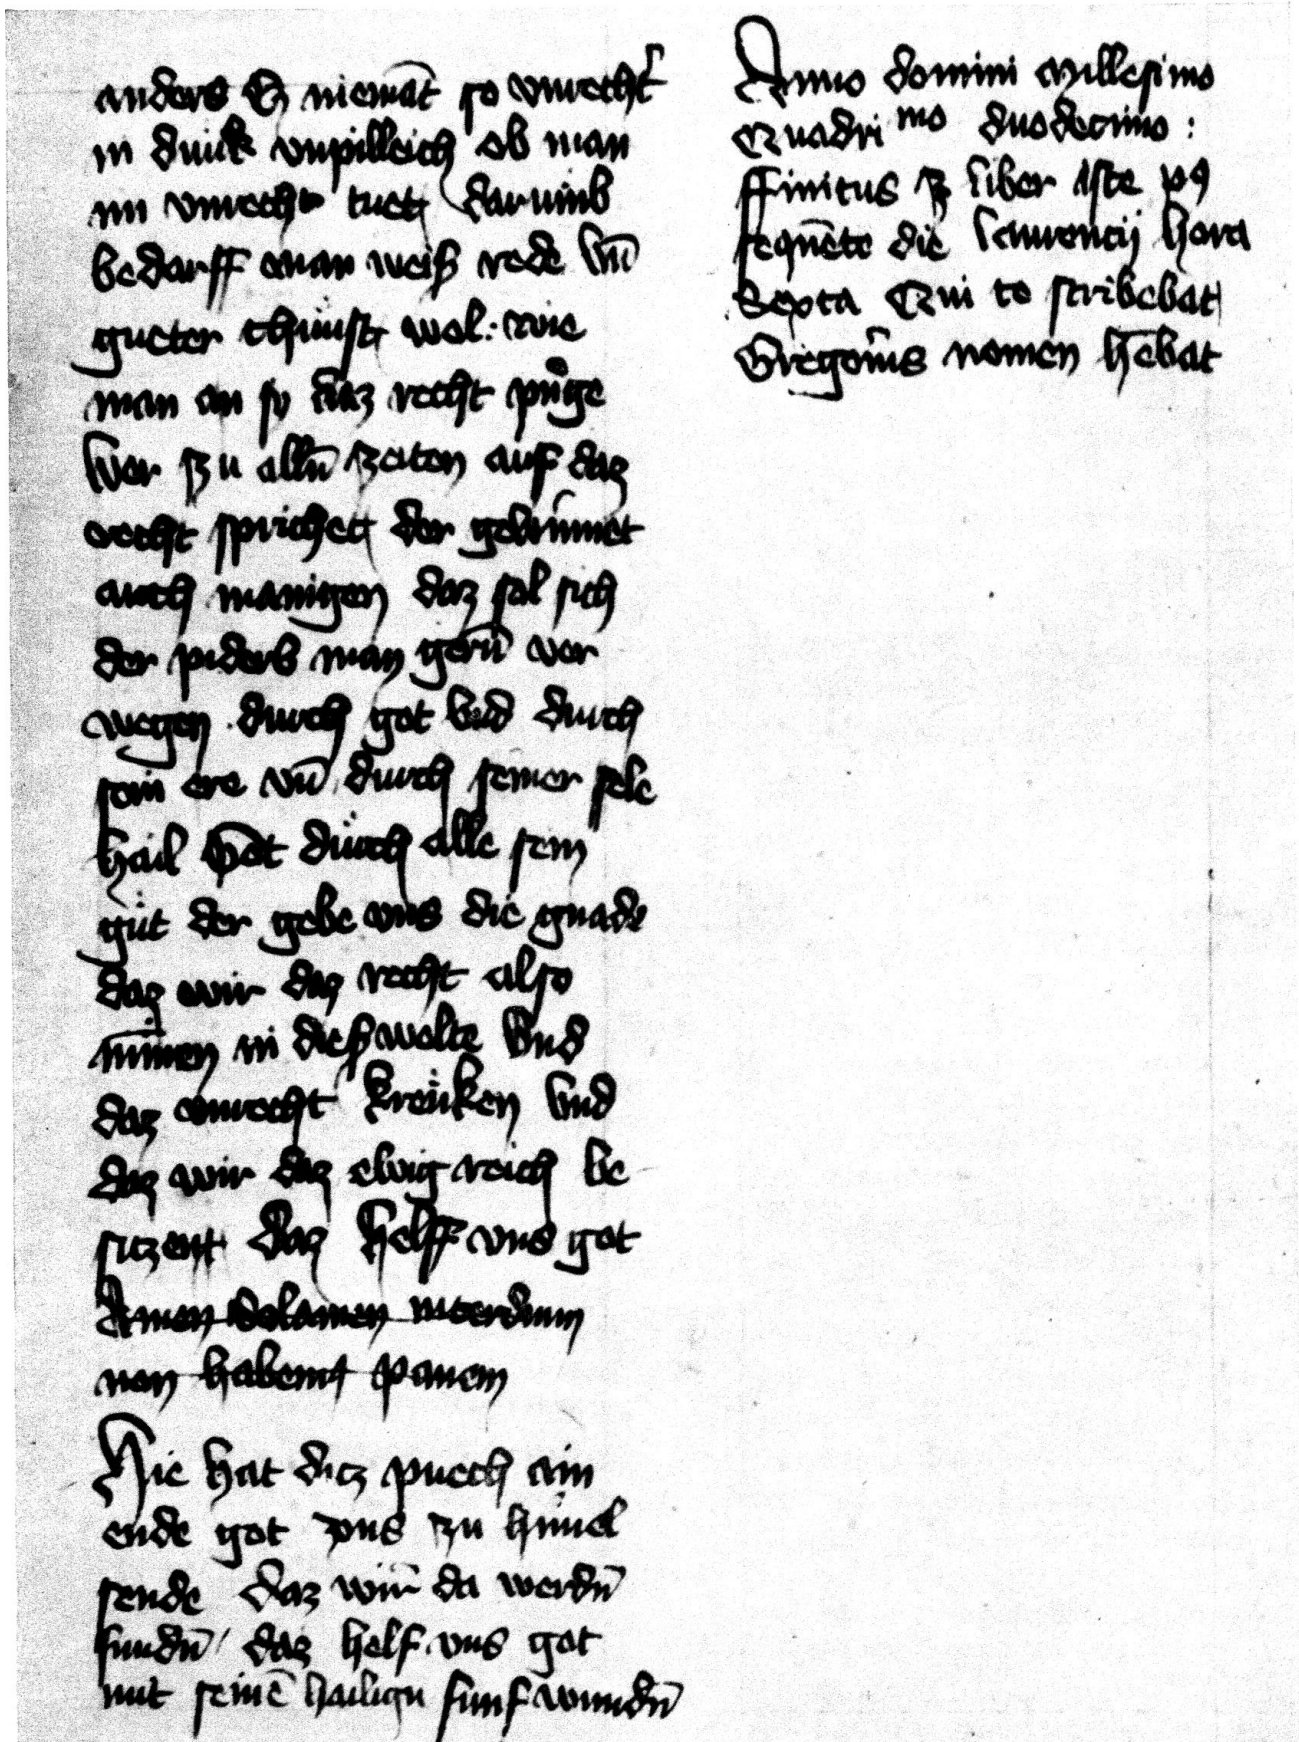 anders Ez niemāt so vnrecht
in dunk vnpilleich ob man
im vnrecht tuet darumb
bedarff man weiß rede vn̄
gueter chunst wol : wie
man an so daz recht
Wer zu alln̄ zeiten auf daz
recht sprichet der gebinnet
auch manigen daz sol sich
der piderb man gern̄ ver
wegen durch got vnd durch
sein ere vn̄ durch seiner sele
hail Got durch alle sein
güt der gebe vns die gnade
daz wir daz recht also
minnen in dießwelte vnd
daz vnrecht krenken vnd
daz wir daz ewig reich be
siczent daz helff vns got
Amen Solamen interdum
non habemꝰ panem
Hie hat ditz puech ain
ende got vns zu himel
sende daz wir da werdn̄
fundn̄ daz helf vns got
mit seinē hailign funf wundn̄
Anno domini Millesimo
Quadri mo duodecimo :
ffinitus ez liber iste pꝰ
sequēte die laurencij hora
Sexta Qui te scribebat
Gregorius nomen hēbat